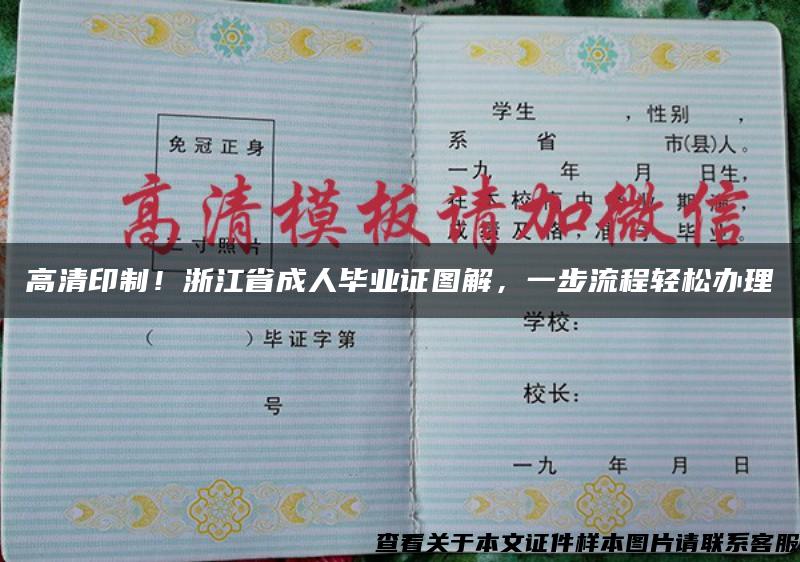 免冠正身
二寸照片
（ ）毕证字第
号
学生 ，性别 ，
系 省 市(县)人。
一九 年 月 日生，
期满，
成绩及格，准予毕业。
学校：
校长：
一九 年 月 日
高清模板请加微信
高清印制！浙江省成人毕业证图解，一步流程轻松办理
查看关于本文证件样本图片请联系客服